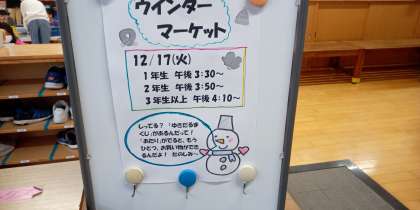 ウインター
マーケット
12/17(火)
1年生 午後3:30~
2年生 午後3:50~
3年生以上 午後4:10~
しってる?「ゆきだるま
くじ」があるんだって!
「あたり」がでると、もう
ひとつ、お買い物ができ
るんだよ! たのしみ~